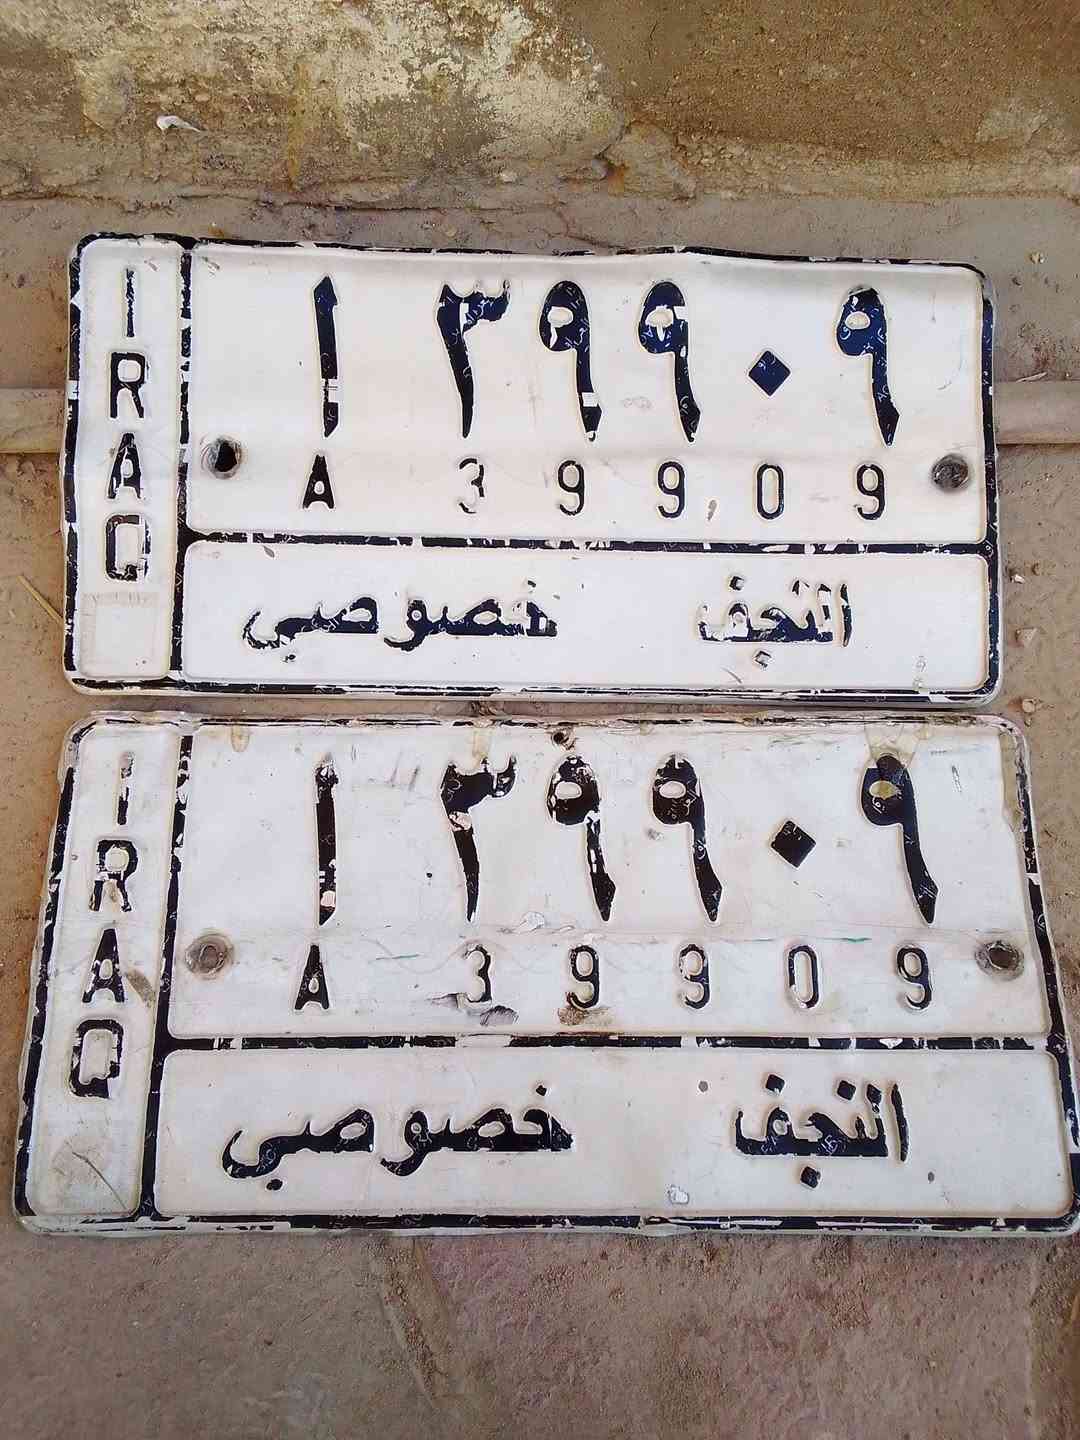 IRAQ
ا ٣٩٩٠٩
A 39909
النجف خصوصي
IRAQ
ا ٣٩٩٠٩
A 39909
النجف خصوصي